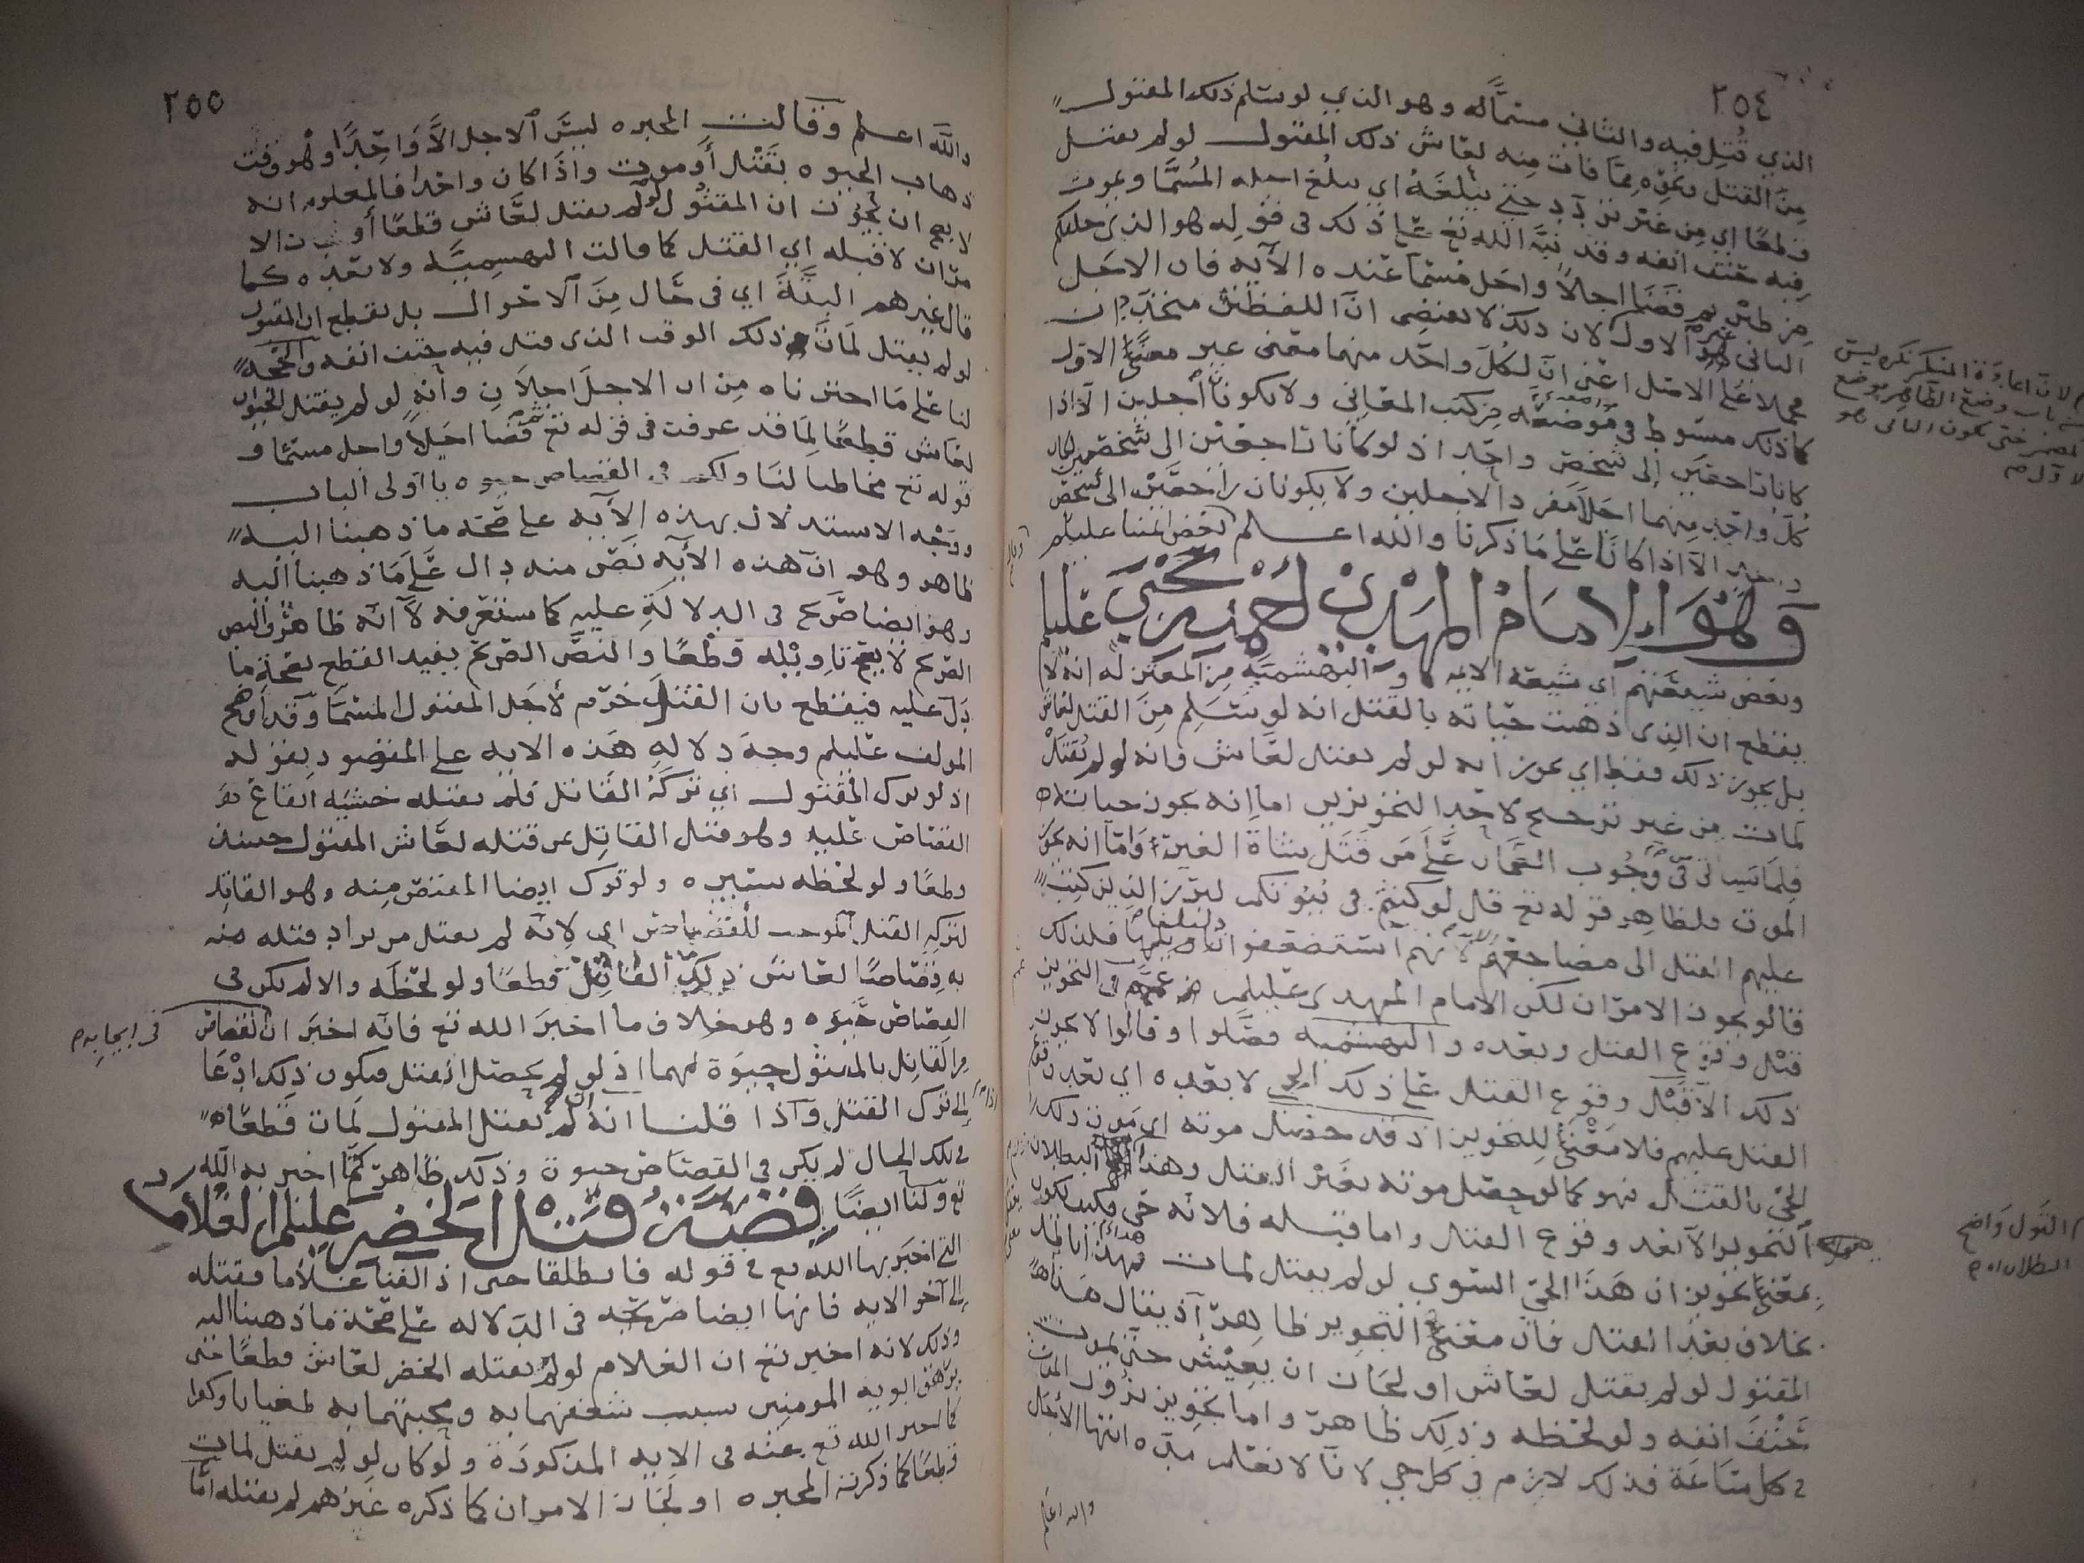 ٢٥٤
الذي قُتِل فيه والثاني مسمَّا له وهو الذي لو سلم ذلك المقتول
من القتل وغيره مما فات منه لعاش ذلك المقتول لو لم يقتل
قطعًا اي من غير تردد حتى يبلغهُ اي يبلغ اجله المُسمَّا ويموت
فيه حتف انفه وقد نبَّه الله تع على ذلك في قوله هو الذي خلقكم
من طين ثم قضا اجلاً واجل مسمًا عنده الآيه فان الاجل
الثاني غير الاول لان ذلك لا يقتضي انَّ اللفظين متحدان
كما ذلك مبسوط في موضعه من كتب المعاني ولا يكونا أجلين الا اذا
كانا احقين إلى شخص واحد اذ لو كانا احقين الى شخصين لكان
كلّ واحد منهما اجلاً مفرد الاجلين ولا يكونان راجعين الى شخص
واحد الاَّ اذا كانا على ما ذكرنا والله اعلم
وهو الامام المهدي احمد بن يحيى عليلم
وبعض شيعتهم اي شيعة الايمه والبهشميَّه من المعتزله انه لا
يقطع ان الذي ذهبت حياته بالقتل انه لو سَلِم مِنَ القتل لعاش
بل يجوز ذلك فقط اي يجوز انه لو لم يقتل لعاش وانه لو لم يُقتل
لمات من غير ترجيح لاحد التجويزين اما انه يجوز حياته
فلما سياتي في وُجُوب الضمان على من قتل شاة الغير وامَّا انه يجوز
الموت فلظاهر قوله تع قل لو كنتم في بيوتكم لبرز الذين كتب
عليهم القتل الى مضاجعهم
قالو يجوز الامران لكن الامام المهدي عليلم عمم في التجويز
قبل وقوع القتل وبعده والبهشميه فصَّلوا وقالوا لا يجوز
ذلك الاّ قَبْل وقوع القتل على ذلك الحي لا بعده اي بعد وقوع
القتل عليهم فلا معنى للتجويز اذ قد حصل موته اي موت ذلك
الحيّ بالقتل فهو كما لو حصل موته بغير القتل وهذا البطلان
التجويز الا بعد وقوع القتل واما قبله فلانه حي فكيف يكون
بمعنى تجويز ان هَذَا الحيّ السّوي لو لم يقتل لمات
بخلاف بعد القتل فان معنى التجويز ظاهر اذ يقال هذا
المقتول لو لم يقتل لعاش او لجاز ان يعيش حتى يموت
حَتْفَ انفه ولو لحظه وذلك ظاهر واما تجويز نزول الموت
في كل ساعة فذلك لازم في كل حي لانَّا لا نعلم مدّه انتها الأجل
لانّ اعادة المنكر نكره ليس
من باب وضع الظاهر موضع
المضمر حتى يكون الثاني هو
الاول
القول واضح
البطلان
والله اعلم
٢٥٥
والله اعلم وقالت المجبره ليس الاجل الاَّ وَاحِدًا وهُو وقت
ذهاب الحيوه بقَتْل أو موت واذا كان واحدًا فالمعلوم انه
لا يصح ان يجوز ان المقتُول لو لم يقتل لعَاش قطعًا أو
ان لا قبله اي القتل كما قالت البهشميَّه ولا بعده كما
قال غيرهم البتَّةَ اي في حَال مِنَ الاحوال بل نقطع ان المقتول
لو لم يقتل لماتَ ذلك الوقت الذي قتل فيه حتف انفه والحجة
لنا على ما اخترناه من ان الاجل اجلان وأنه لو لم يقتل الحيوان
لعاش قطعًا لما قد عرفت في قوله تع ثم قضا اجلاً واجل مسمًا و
قوله تع مخاطبا لنا ولكم في القصاص حيوه يا اولى الباب
ووَجْه الاستدلال بهذه الأيه على صحّه ما ذهبنا اليه
ظاهر وهو انَّ هذه الأيَه نَصّ منه دال على ما ذهبنا اليه
وهو ايضا صَريح في الدلالةِ عليه كما ستعرفه لانه ظاهر والنص
الصّريح لا يصح تاوِيْله قطعًا والنصّ الصّريح يفيد القطع بصحة ما
دَلّ عليه فيقطع بان القتل خرم لأجل المقتول المسمَّا وقد أوضح
المولف عليلم وجهَ دلالهِ هذه الايه على المقصود بقوله
اذ لو ترك المقتول اي تركهُ القاتل فلم يقتله خشيه ايقاع
القصَاص عَليه وهو قتل القاتل عن قتله لعَاش المقتول حينئذ
قطعًا ولو لحظه يسيره ولو تُرك ايضا المقتص منه وهو القاتل
لتركِهِ القتل الموجب للقصاص اي لانّه لم يقتل من يراد قتله منه
به قصَاصًا لعَاش ذلك القَاتِل قطعًا ولو لحظَه والا لم يكن في
القصَاص حَيَوه وهو خلاف ما اخبرَ الله تع فانّه اخبرَ ان القصاص
من القاتِل بالمقتول حيوَة لهما اذ لو لم يحصل القتل
إلى ترك القتل واذا قلنا انه لو لم يقتل المقتول لمات قطعًا
في تلك الحال لم يكن في القصاص حيوة وذلك ظاهر كما اخبر به الله
تع ولنا ايضًا قصة قتل الخضر عليلم الغلام
التي اخبَر بها الله تع في قوله فانطلقا حتى اذ القيا غلاما فقتله
إلى آخر الايه فانها ايضا صَريحه في الدَلاله على صحّة ما ذهبنا اليه
وذلك لانه اخبر تع ان الغلام لو لم يقتله الخضر لعاش قطعًا حتى
يرهقَ ابويه المومنين سبب شغفهما به ومحبتهما به لطغيانا وكفرا
كما اخبر الله تع عنه في الايه المذكورَة ولو كان لو لم يقتل لمات
قطعًا كما ذكرته المجبره او لجاز الامران كما ذكره غيرهم لم يقتله امَّا
في ايجابه